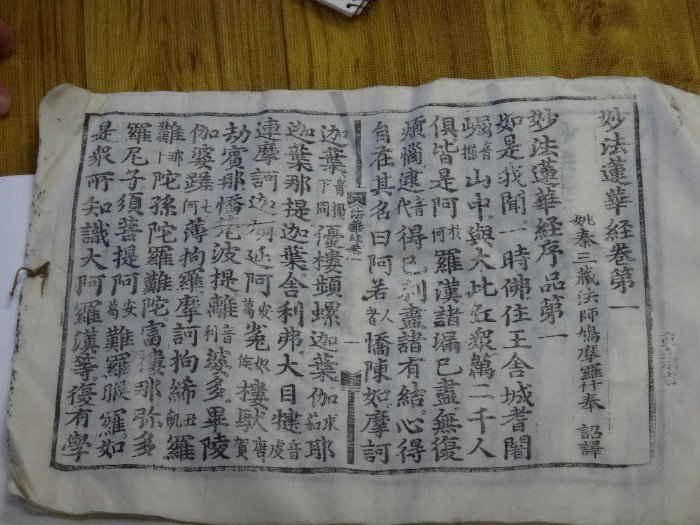 妙法蓮華経卷第一
姚秦三藏法師鳩摩羅什奉 詔譯
妙法蓮華経序品第一
如是我聞一時佛住王舍城耆闍
崛音掘山中與大比丘衆萬二千人
俱皆是阿於何羅漢諸漏已盡無復
煩惱逮音代得已利盡諸有結心得
自在其名曰阿若人者憍陳如摩訶
法華経卷一 一
迦葉音攝下同優樓頻螺迦葉伽求茄耶
迦葉那提迦葉舍利弗大目犍音虔
連摩訶迦旃延阿安葛㝹奴侯樓馱唐賀
劫賓那憍梵波提離音利婆多畢陵
伽婆蹉七何薄拘羅摩訶拘絺丑飢羅
難陀孫陀羅難陀富樓那弥多
羅尼子須菩提阿安葛難羅睺羅如
是衆所知識大阿羅漢等復有學